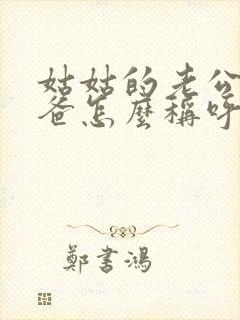 姑姑的老公
爸怎麼稱呼
鄭書鴻